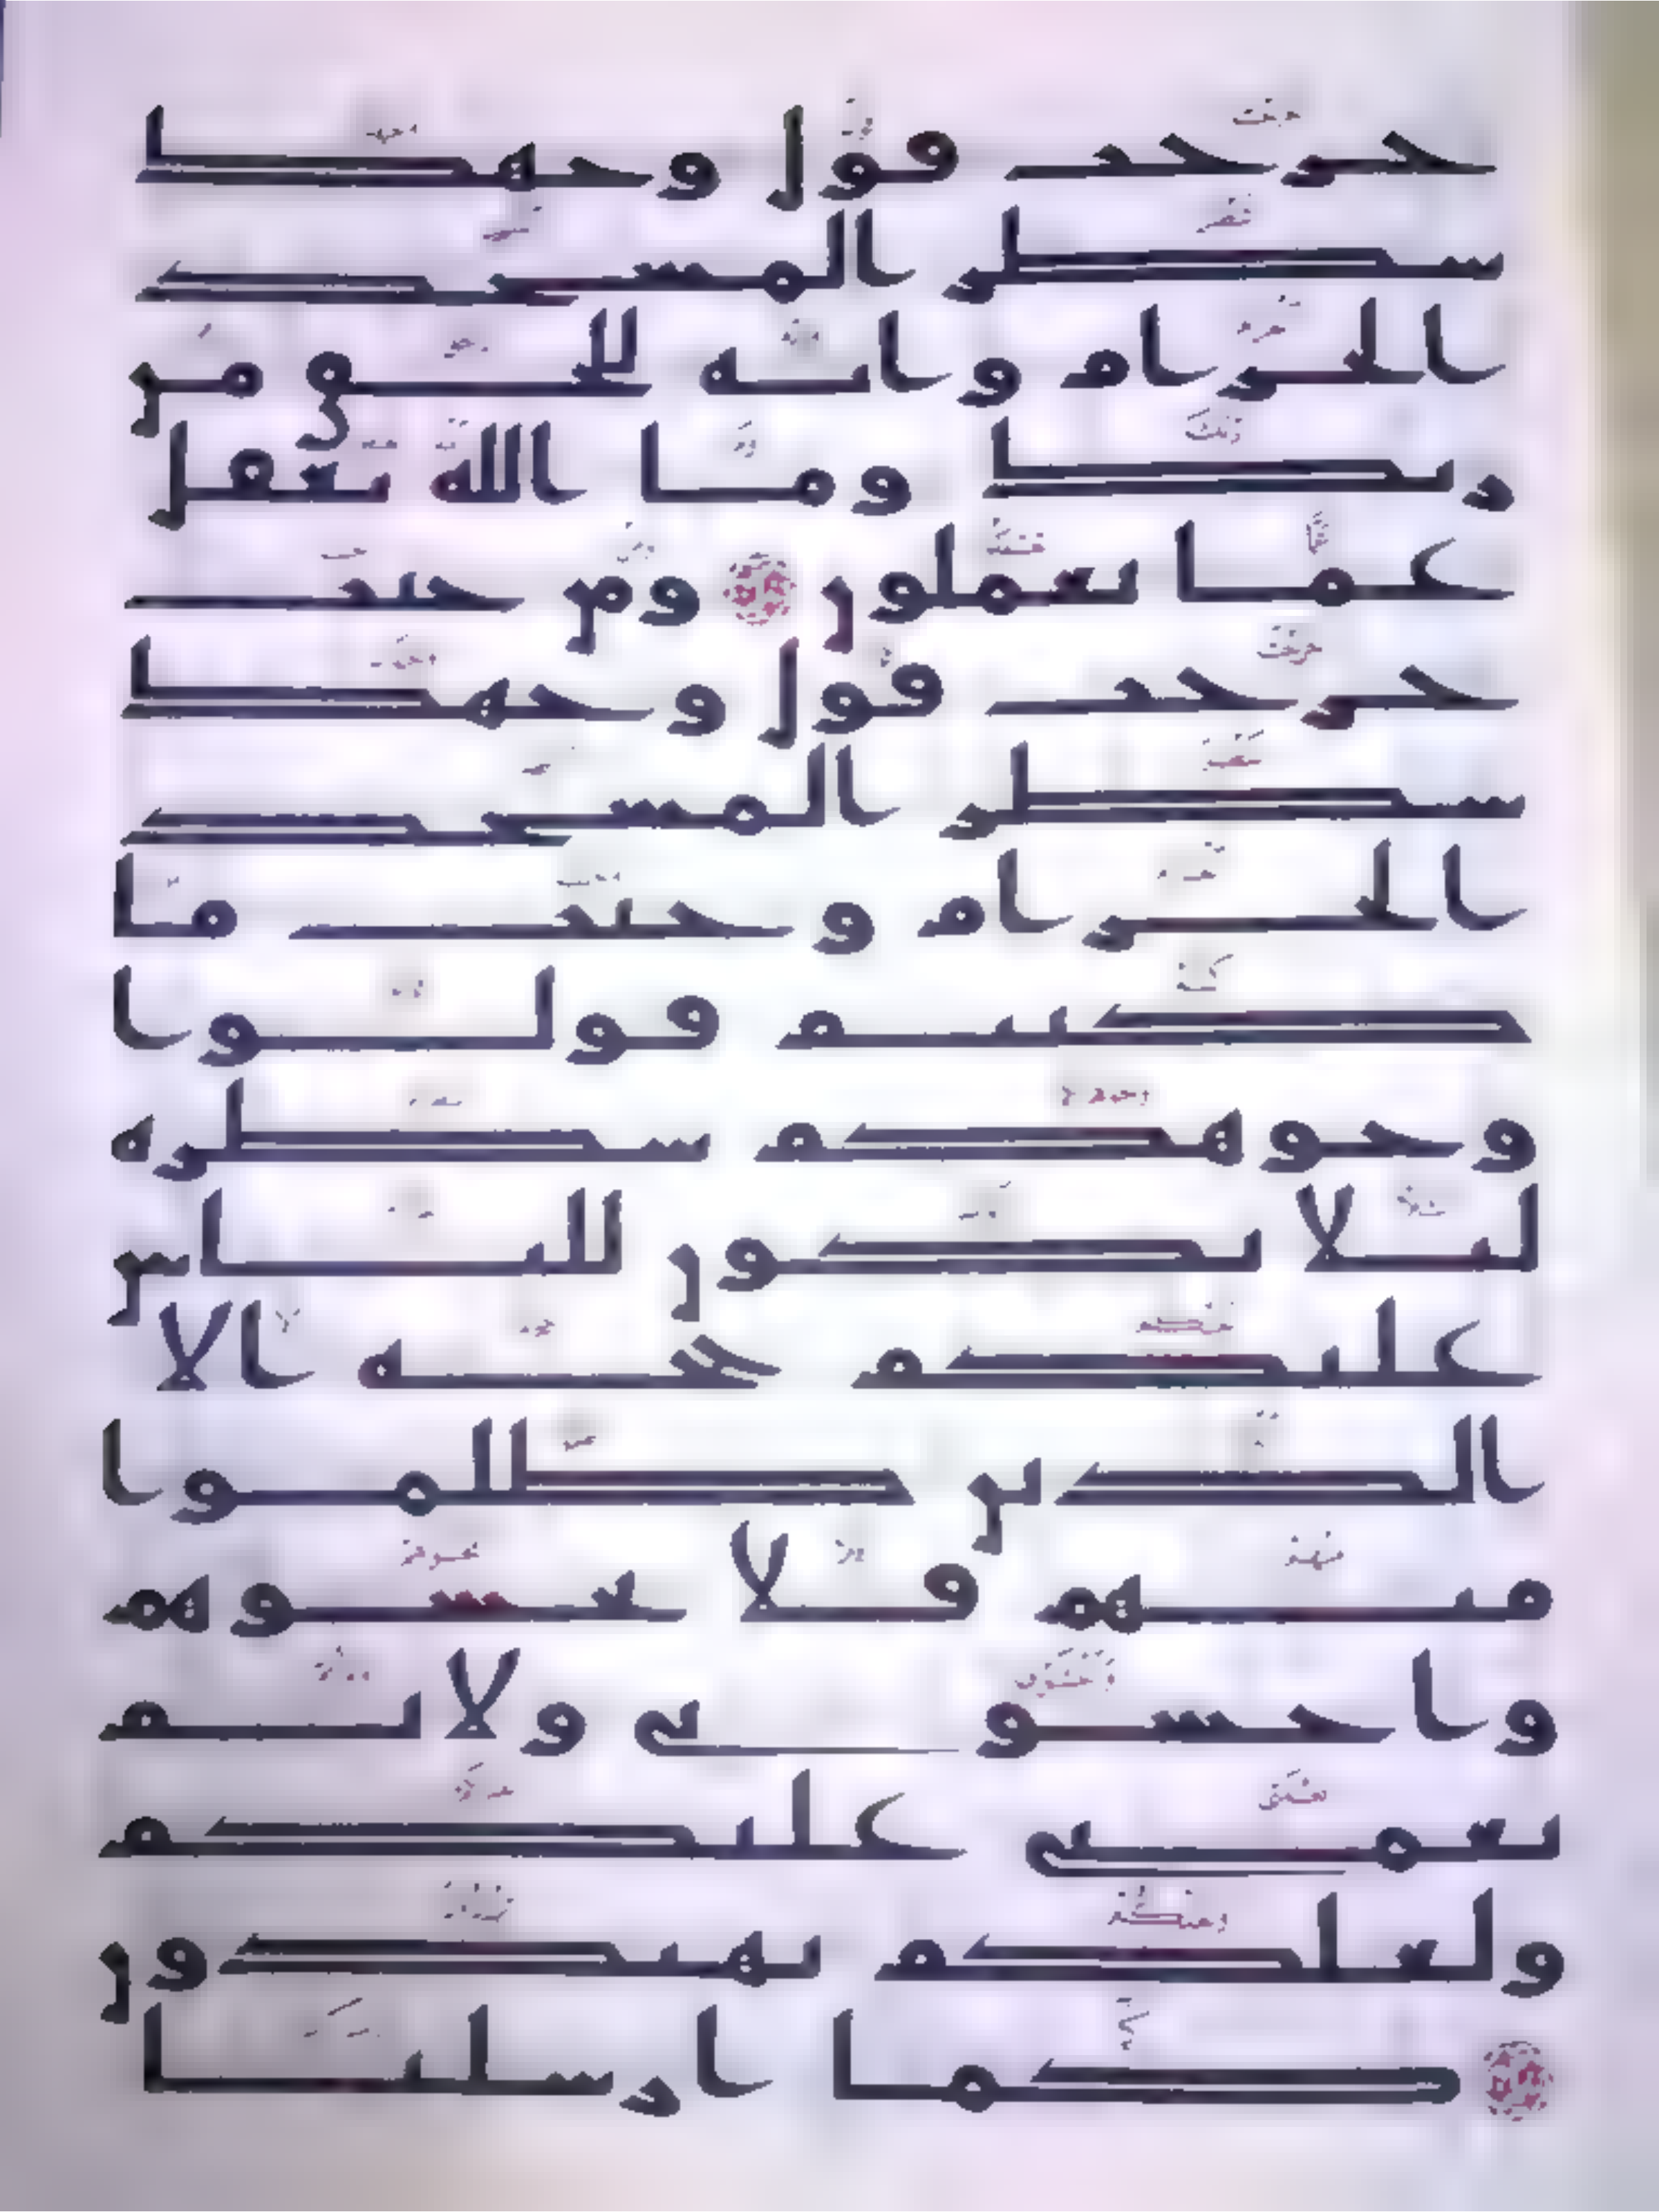 خرجت فول وجهك
شطر المسجد
الحرام وانه للحق من
ربك وما الله بغفل
عما تعملون ومن حيث
خرجت فول وجهك
شطر المسجد
الحرام وحيث ما
كنتم فولوا
وجوهكم شطره
لئلا يكون للناس
عليكم حجة الا
الذين ظلموا
منهم فلا تخشوهم
واخشوني ولاتم
نعمتي عليكم
ولعلكم تهتدون
كما ارسلنا